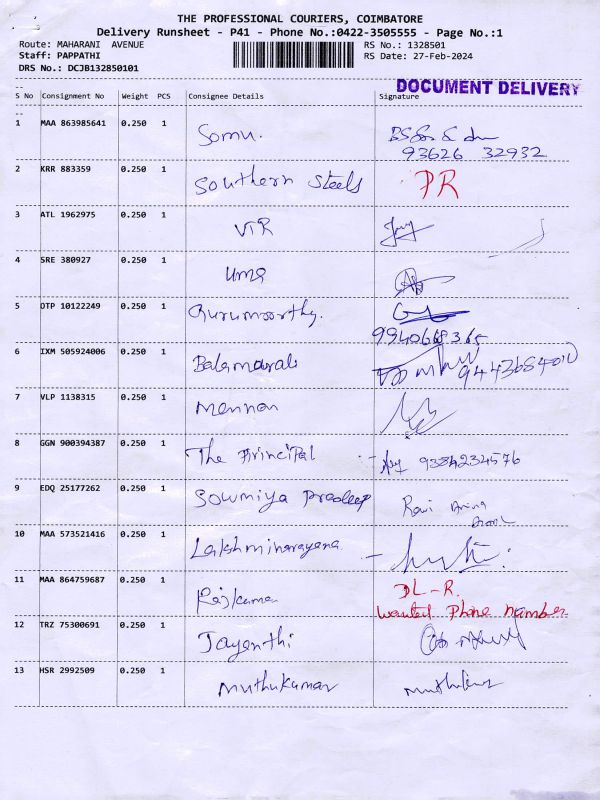 THE PROFESSIONAL COURIERS, COIMBATORE
Delivery Runsheet - P41 - Phone No.:0422-3505555 - Page No.:1
Route: MAHARANI AVENUE
RS No.: 1328501
Staff: PAPPATHI
RS Date: 27-Feb-2024
DRS No.: DCJB132850101
DOCUMENT DELIVERY
S No Consignment No Weight PCS Consignee Details Signature
1 MAA 863985641 0.250 1 Somu.
93626 32932
2 KRR 883359 0.250 1 Southern Steels PR
3 ATL 1962975 0.250 1 VTR
4 SRE 380927 0.250 1 uma
5 DTP 10122249 0.250 1 Gurumoorthy.
9940668365
6 IXM 505924006 0.250 1 Balamurali
7 VLP 1138315 0.250 1 Mennon
8 GGN 900394387 0.250 1 The Principal 9384234576
9 EDQ 25177262 0.250 1 Sowmiya Pradeep Ravi
10 MAA 573521416 0.250 1 Lakshminarayana
11 MAA 864759687 0.250 1 Rajkumar DL-R.
wanted Phone number
12 TRZ 75300691 0.250 1 Jayanthi
13 HSR 2992509 0.250 1 Muthukumar